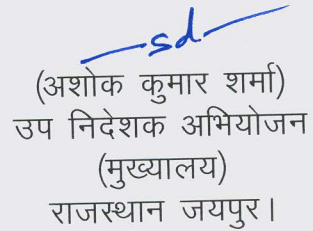 sd
(अशोक कुमार शर्मा)
उप निदेशक अभियोजन
(मुख्यालय)
राजस्थान जयपुर।